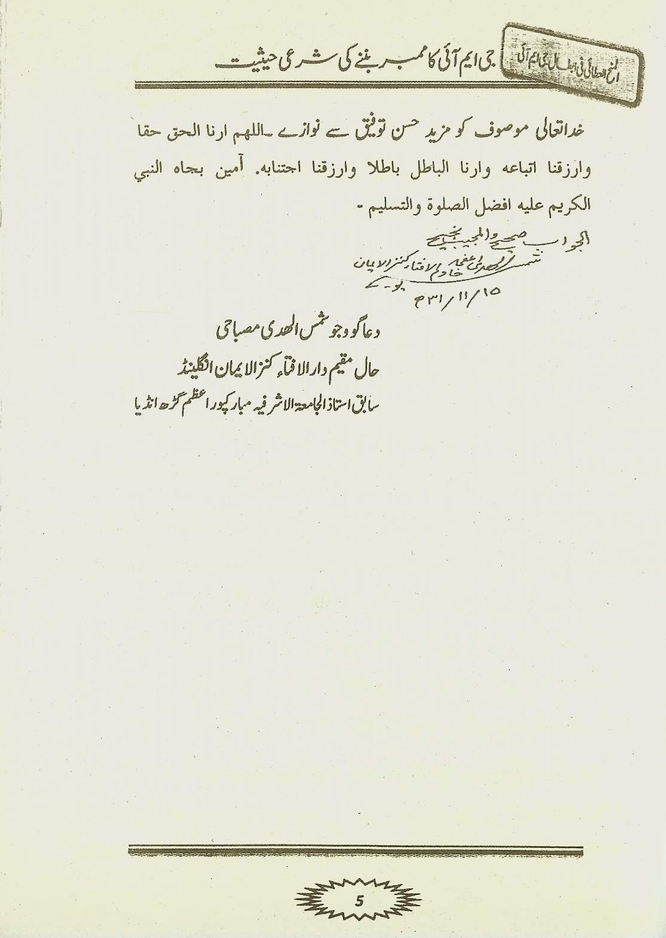 المنح العطائی فی ابطال جی ایم آئی
جی ایم آئی کا ممبر بننے کی شرعی حیثیت
خدا تعالی موصوف کو مزید حسن توفیق سے نوازے ۔اللهم ارنا الحق حقا
وارزقنا اتباعه وارنا الباطل باطلا وارزقنا اجتنابه. آمین بجاه النبي
الكريم عليه افضل الصلوة والتسليم -
الجواب صحیح والمجیب نجیح
شمس الہدی عفی عنہ
خادم الافتاء کنز الایمان
یو کے
۱۵/۱۱/۳۱ھ
دعا گو و جو شمس الھدی مصباحی
حال مقیم دار الافتاء کنز الایمان انگلینڈ
سابق استاذ الجامعۃ الاشرفیہ مبارکپور اعظم گڑھ انڈیا
5